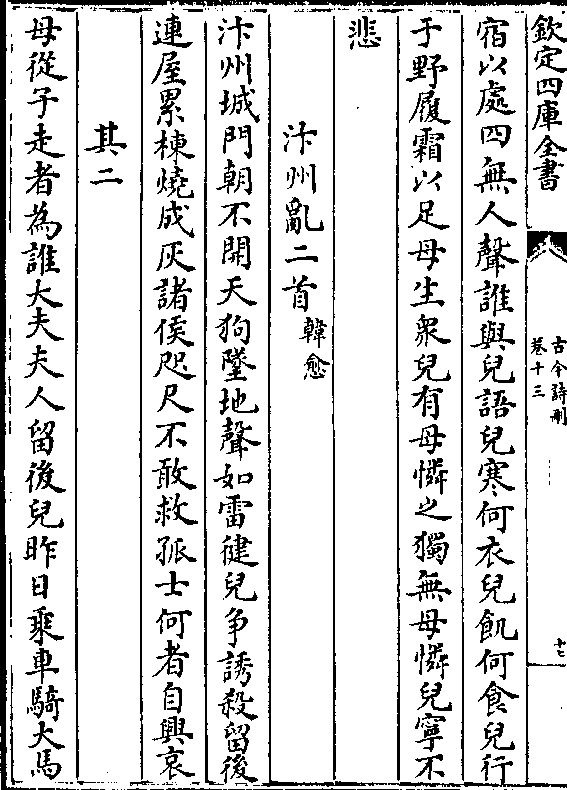 欽定四庫全書
古今詩刪
卷十三
十七
宿以處四無人聲誰與兒語兒寒何衣兒飢何食兒行
于野履霜以足母生衆兒有母憐之獨無母憐兒寧不
悲
汴州亂二首韓愈
汴州城門朝不開天狗墜地聲如雷健兒争誘殺留後
連屋累棟燒成灰諸侯咫尺不敢救孤士何者自興哀
其二
母從子走者為誰大夫夫人留後兒昨日乘車騎大馬